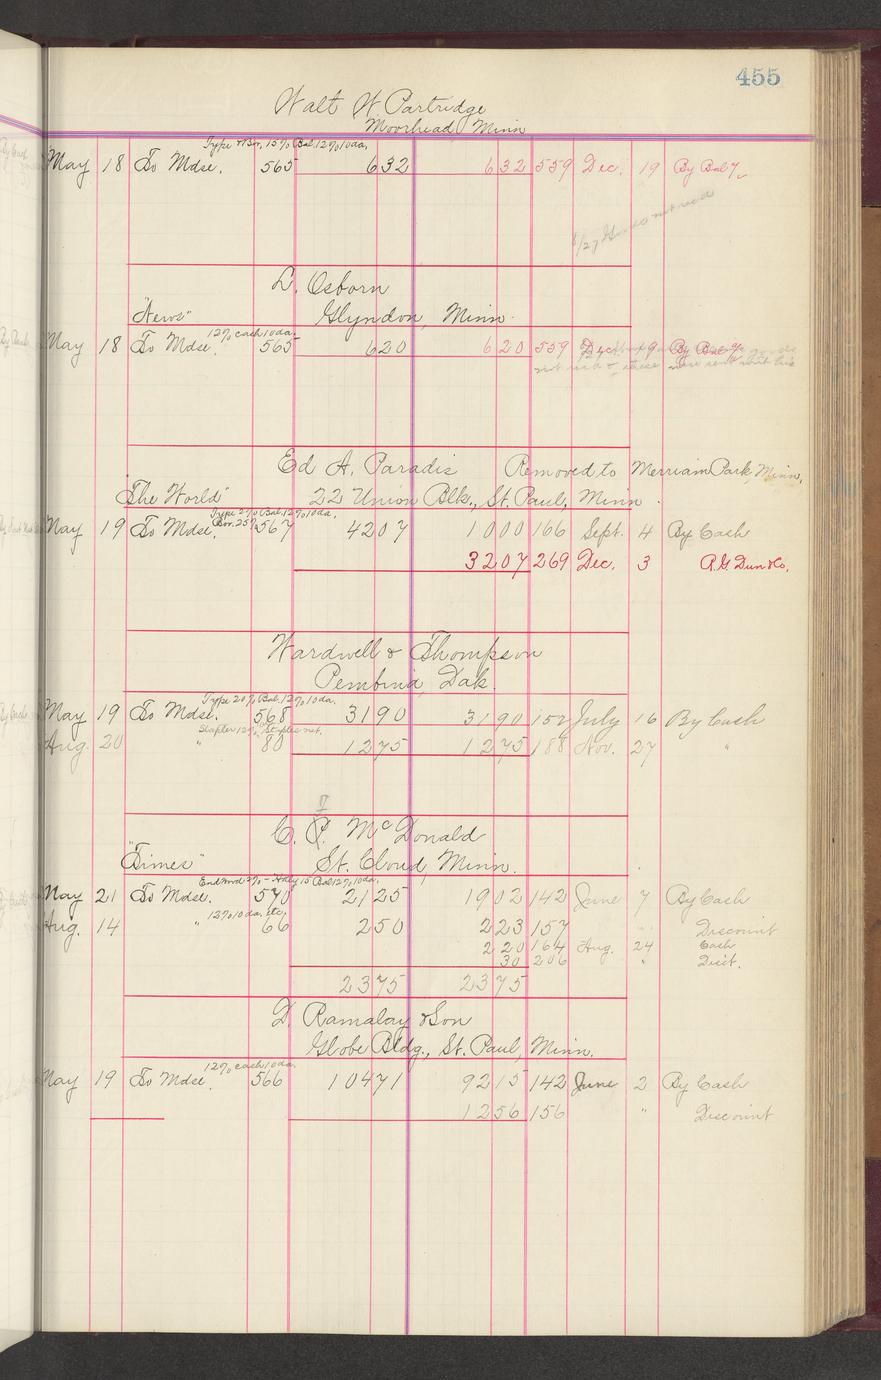 455
Walt W Partridge
Moorhead Minn
Type & Bor. 15% Bal. 12% 10 da.
May 18 To Mdse. 565 632 632 559 Dec. 19 By Bal
8/27
L. Osborn
"News" Glyndon, Minn.
12% cash 10 da.
May 18 To Mdse. 565 620 620 559 Dec. 19 By Bal
Ed A. Paradis Removed to Merriam Park, Minn.
"The World" 22 Union Blk., St. Paul, Minn.
Type 2% Bal. 12% 10 da.
Bor. 25%
May 19 To Mdse. 567 4207 1000 166 Sept. 4 By Cash
3207 269 Dec. 3 R.G. Dun & Co.
Wardwell & Thompson
Pembina, Dak.
Type 20% Bal. 12% 10 da.
May 19 To Mdse. 568 3190 3190 152 July 16 By Cash
Stapler 12% Staples net.
Aug. 20 " 80 1275 1275 188 Nov. 27 "
C. F. McDonald
"Times" St. Cloud, Minn.
May 21 To Mdse. 570 2125 1902 142 June 7 By Cash
12% 10 da. etc.
Aug. 14 " 66 250 223 157 " Discount
220 164 Aug. 24 Cash
30 206 " Disct.
2375 2375
D. Ramalay & Son
Globe Bldg., St. Paul, Minn.
12% cash 10 da.
May 19 To Mdse. 566 10471 9215 142 June 2 By Cash
1256 156 " Discount